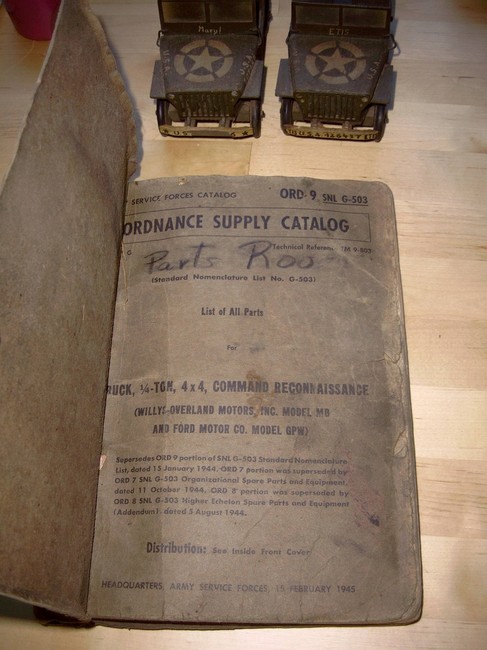 Mary!
U.S.A
SERVICE FORCES CATALOG ORD 9 SNL G-503
ORDNANCE SUPPLY CATALOG
Technical Referen TM 9-803
Parts Roo
(Standard Nomenclature List No. G-503)
List of All Parts
For
RUCK, ¼-TON, 4 x 4, COMMAND RECONNAISSANCE
(WILLYS-OVERLAND MOTORS, INC. MODEL MB
AND FORD MOTOR CO. MODEL GPW)
Supersedes ORD 9 portion of SNL G-503 Standard Nomenclature
List, dated 15 January 1944. ORD 7 portion was superseded by
ORD 7 SNL G-503 Organizational Spare Parts and Equipment,
dated 11 October 1944. ORD 8 portion was superseded by
ORD 8 SNL G-503 Higher Echelon Spare Parts and Equipment
(Addendum), dated 5 August 1944.
Distribution: See Inside Front Cover
HEADQUARTERS, ARMY SERVICE FORCES, 15 FEBRUARY 1945